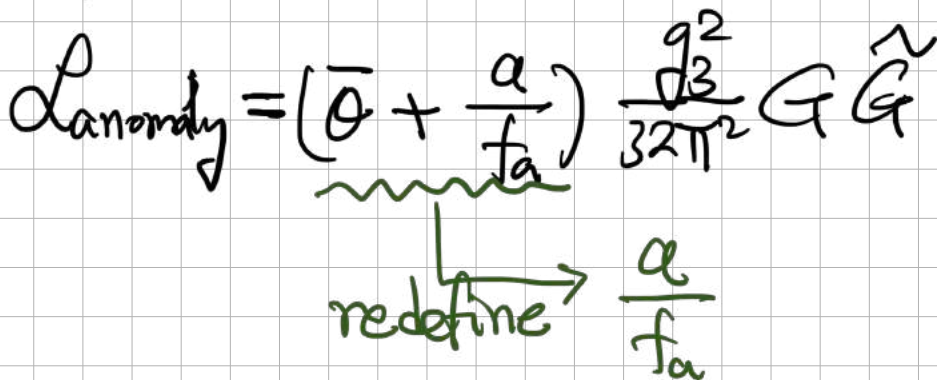 ℒ_anomaly = (θ̄ + a/f_a) g_3^2/32π^2 G G̃
redefine → a/f_a